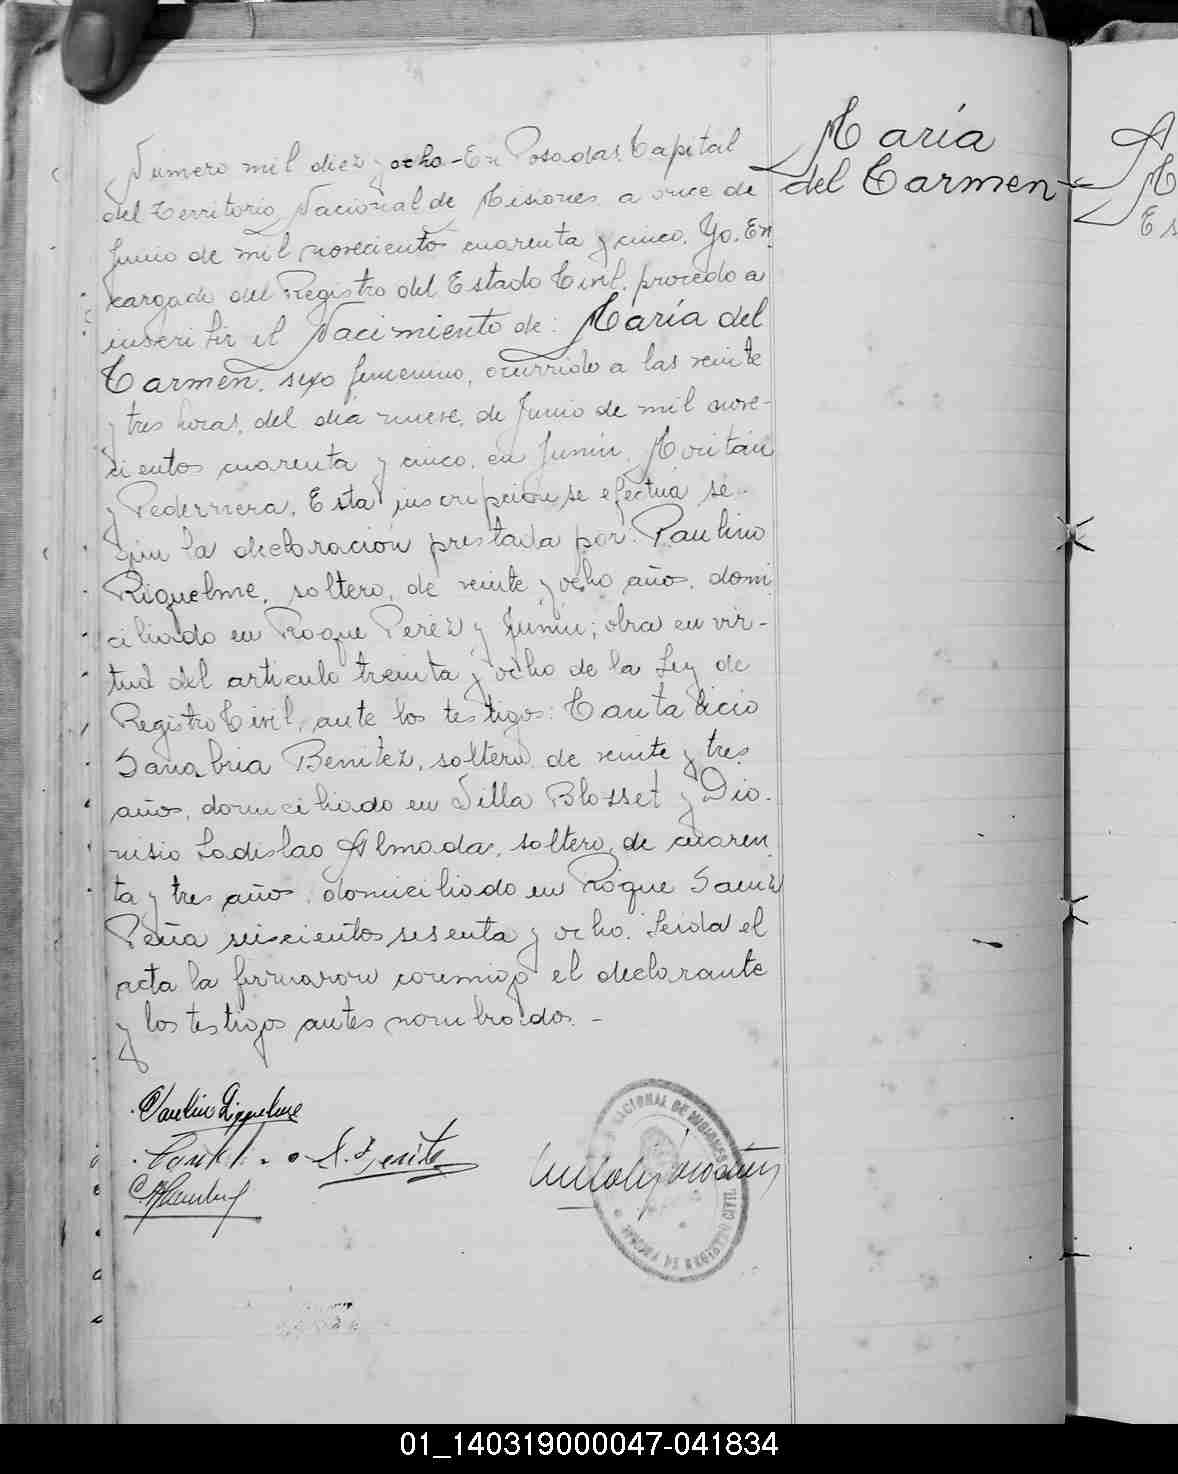 María
del Carmen
Numero mil diez y ocho - En Posadas, Capital
del Territorio Nacional de Misiones, a once de
Junio de mil novecientos cuarenta y cinco. Yo. En
cargado del Registro del Estado Civil, procedo a
inscribir el Nacimiento de: María del
Carmen, sexo femenino, ocurrido a las veinte
y tres horas, del día nueve, de Junio de mil nove-
cientos cuarenta y cinco, en Junín,
y Pedernera. Esta inscripción se efectúa se-
gún la declaración prestada por: Paulino
Riquelme, soltero, de veinte y ocho años, domi
ciliado en Roque Perez y Junín; obra en vir-
tud del articulo treinta y ocho de la Ley de
Registro Civil, ante los testigos: Cantalicio
Sanabria Benitez, soltero, de veinte y tres
años, domiciliado en Villa Blosset y Dio-
nisio Ladislao Almada, soltero, de cuaren
ta y tres años, domiciliado en Roque Saenz
Peña seiscientos sesenta y ocho. Leída el
acta la firmaron conmigo el declarante
y los testigos antes nombrados. -
Paulino Riquelme
NACIONAL DE MISIONES
REGISTRO CIVIL
01_140319000047-041834